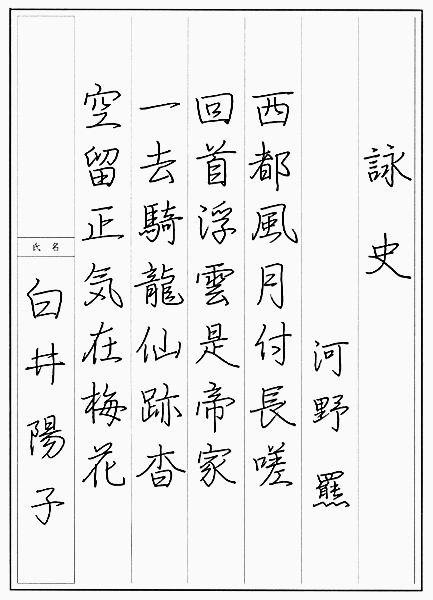 詠史
河野羆
西都風月付長嗟
回首浮雲是帝家
一去騎龍仙跡杳
空留正気在梅花
氏名
白井陽子